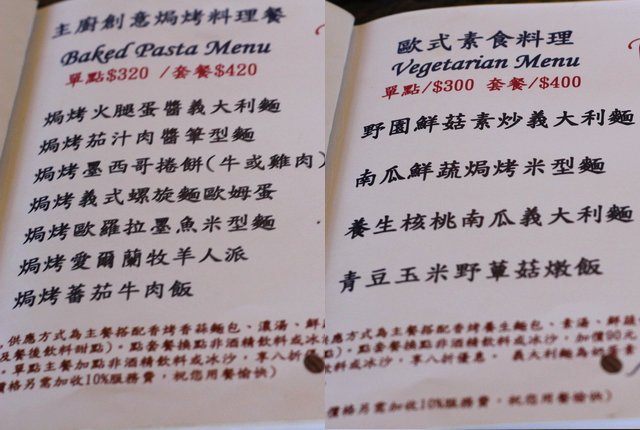 主廚創意焗烤料理餐
Baked Pasta Menu
單點$320 /套餐$420
焗烤火腿蛋醬義大利麵
焗烤茄汁肉醬筆型麵
焗烤墨西哥捲餅(牛或雞肉)
焗烤義式螺旋麵歐姆蛋
焗烤歐羅拉墨魚米型麵
焗烤愛爾蘭牧羊人派
焗烤蕃茄牛肉飯
供應方式為主餐搭配香烤香蒜麵包、濃湯、鮮
及餐後飲料甜點)。點套餐換點非酒精飲料或冰
。單點主餐加點非酒精飲料或冰沙,享八折
價格另需加收10%服務費,祝您用餐愉快)
歐式素食料理
Vegetarian Menu
單點/$300 套餐/$400
野園鮮菇素炒義大利麵
南瓜鮮蔬焗烤米型麵
養生核桃南瓜義大利麵
青豆玉米野蕈菇燉飯
應方式為主餐搭配香烤養生麵包、素湯、鮮蔬
飲料甜點)。點套餐換點非酒精飲料或冰沙,加價90元
料或冰沙,享八折優惠。 義大利麵為奶蛋素
價格另需加收10%服務費,祝您用餐愉快)